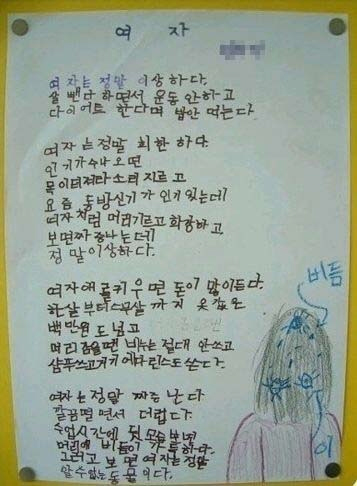 여 자
여자는 정말 이상하다.
살 뺀다 하면서 운동 안하고
다이어트 한다며 밥안 먹는다
여자는 정말 희한 하다.
인기가수나오면
목이터져라소리지르고
요즘 동방신기가 인기있는데
여자처럼 머리기르고 화장하고
보면짜증나는데
정말이상하다.
여자애들키우면 돈이 많이든다.
한살부터스무살까지 옷값은
백만원도넘고
머리감을땐 비누는 절대 안쓰고
샴푸쓰고거기에다린스도쓴다.
여자는 정말 짜증난다
깔끔떨면서 더럽다
수업시간에 뒷모습보면
머리에 비듬이 가득하다.
그러고 보면 여자는정말
알수없는동물이다.
비듬
이